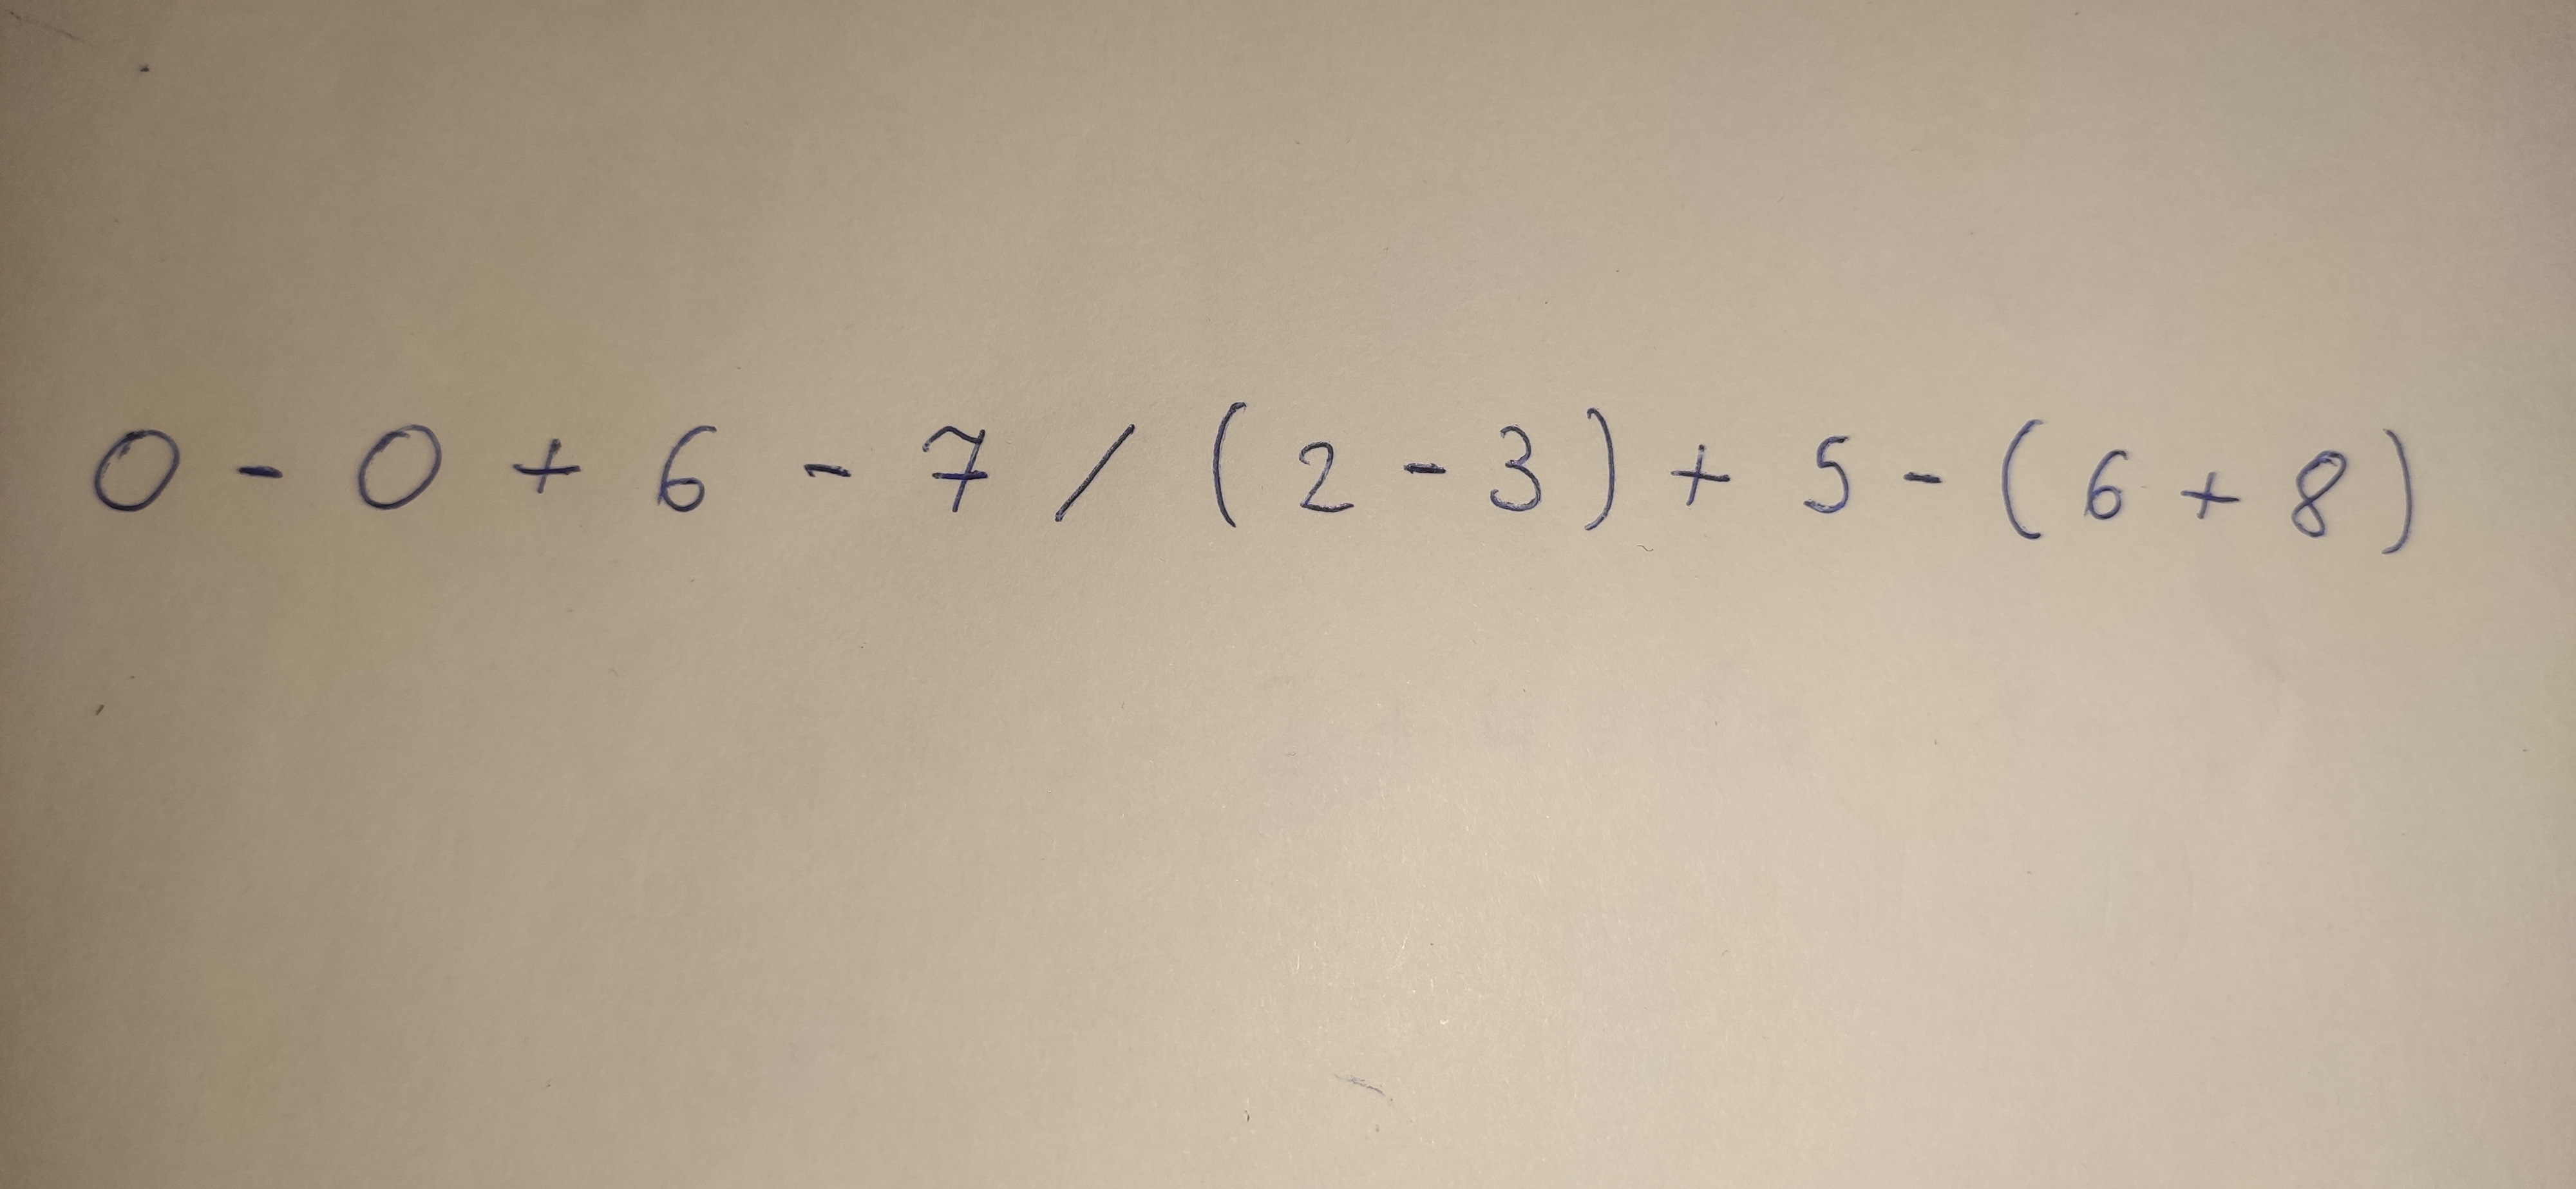 0 - 0 + 6 - 7 / ( 2 - 3 ) + 5 - ( 6 + 8 )